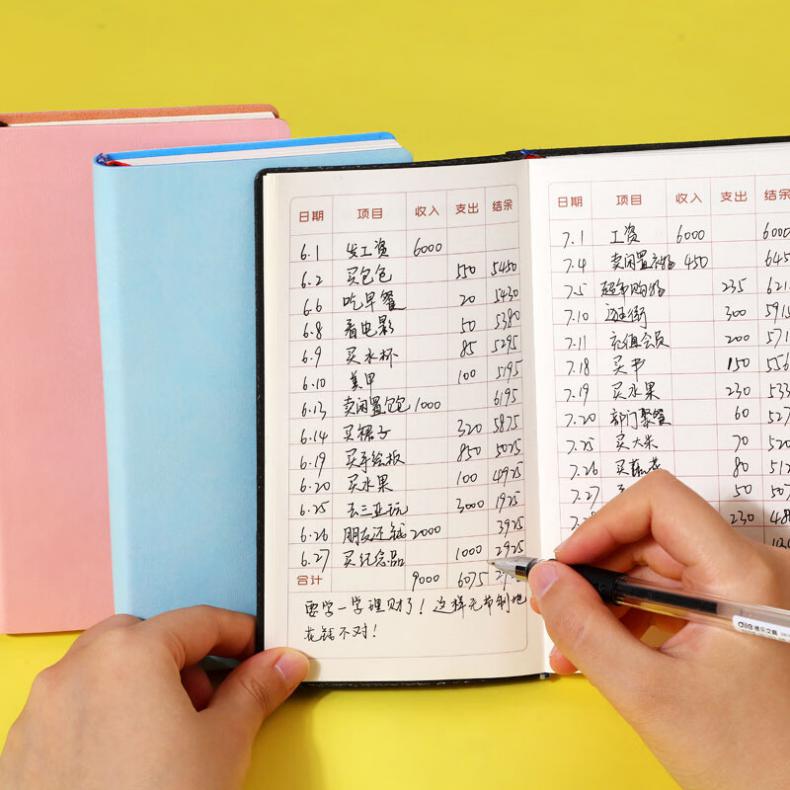 日期 项目 收入 支出 结余
6.1 发工资 6000
6.2 买包包 550 5450
6.6 吃早餐 20 5430
6.8 看电影 50 5380
6.9 买水杯 85 5295
6.10 美甲 100 5195
6.13 卖闲置包包 1000 6195
6.14 买裙子 320 5875
6.19 买手绘板 850 5025
6.20 买水果 100 4925
6.25 去三亚玩 3000 1925
6.26 朋友还钱 2000 3925
6.27 买纪念品 1000 2925
合计 9000 6075
要学一学理财了！这样无节制地
花钱不对！
日期 项目 收入 支出 结余
7.1 工资 6000 6000
7.4 卖闲置衣物 450 645
7.5 超市购物 235 621
7.10 逛街 300 591
7.11 充值会员 200 571
7.18 买书 150 556
7.19 买水果 230 533
7.20 部门聚餐 60 527
7.25 买大米 70 520
7.26 买 80 512
7.27 50 507
230 48